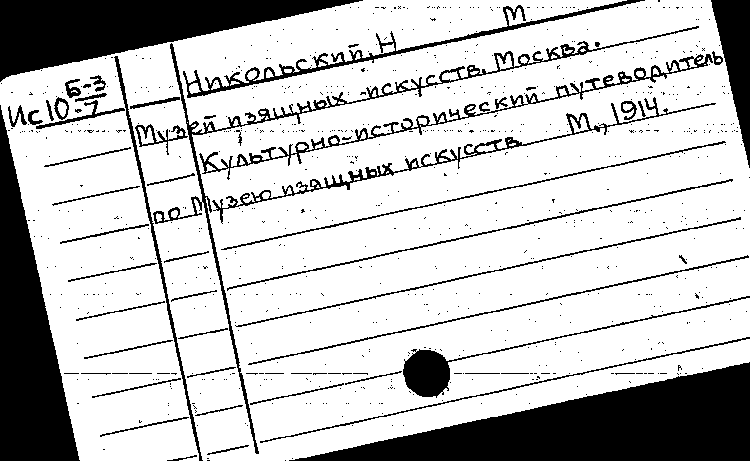 М
Никольский, Н
Ис10 Б-3
-7
Музей изящных искусств. Москва.
Культурно-исторический путеводитель
по Музею изящных искусств М., 1914.